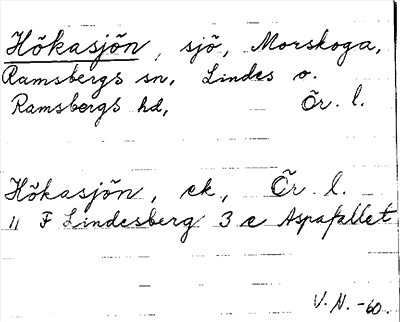 Hökasjön, sjö, Morskoga,
Ramsbergs sn, Lindes o.
Ramsbergs hd, Ör. l.
Hökasjön, ek., Ör. l.
11 F Lindesberg 3 e Aspafallet
V. N. -60.